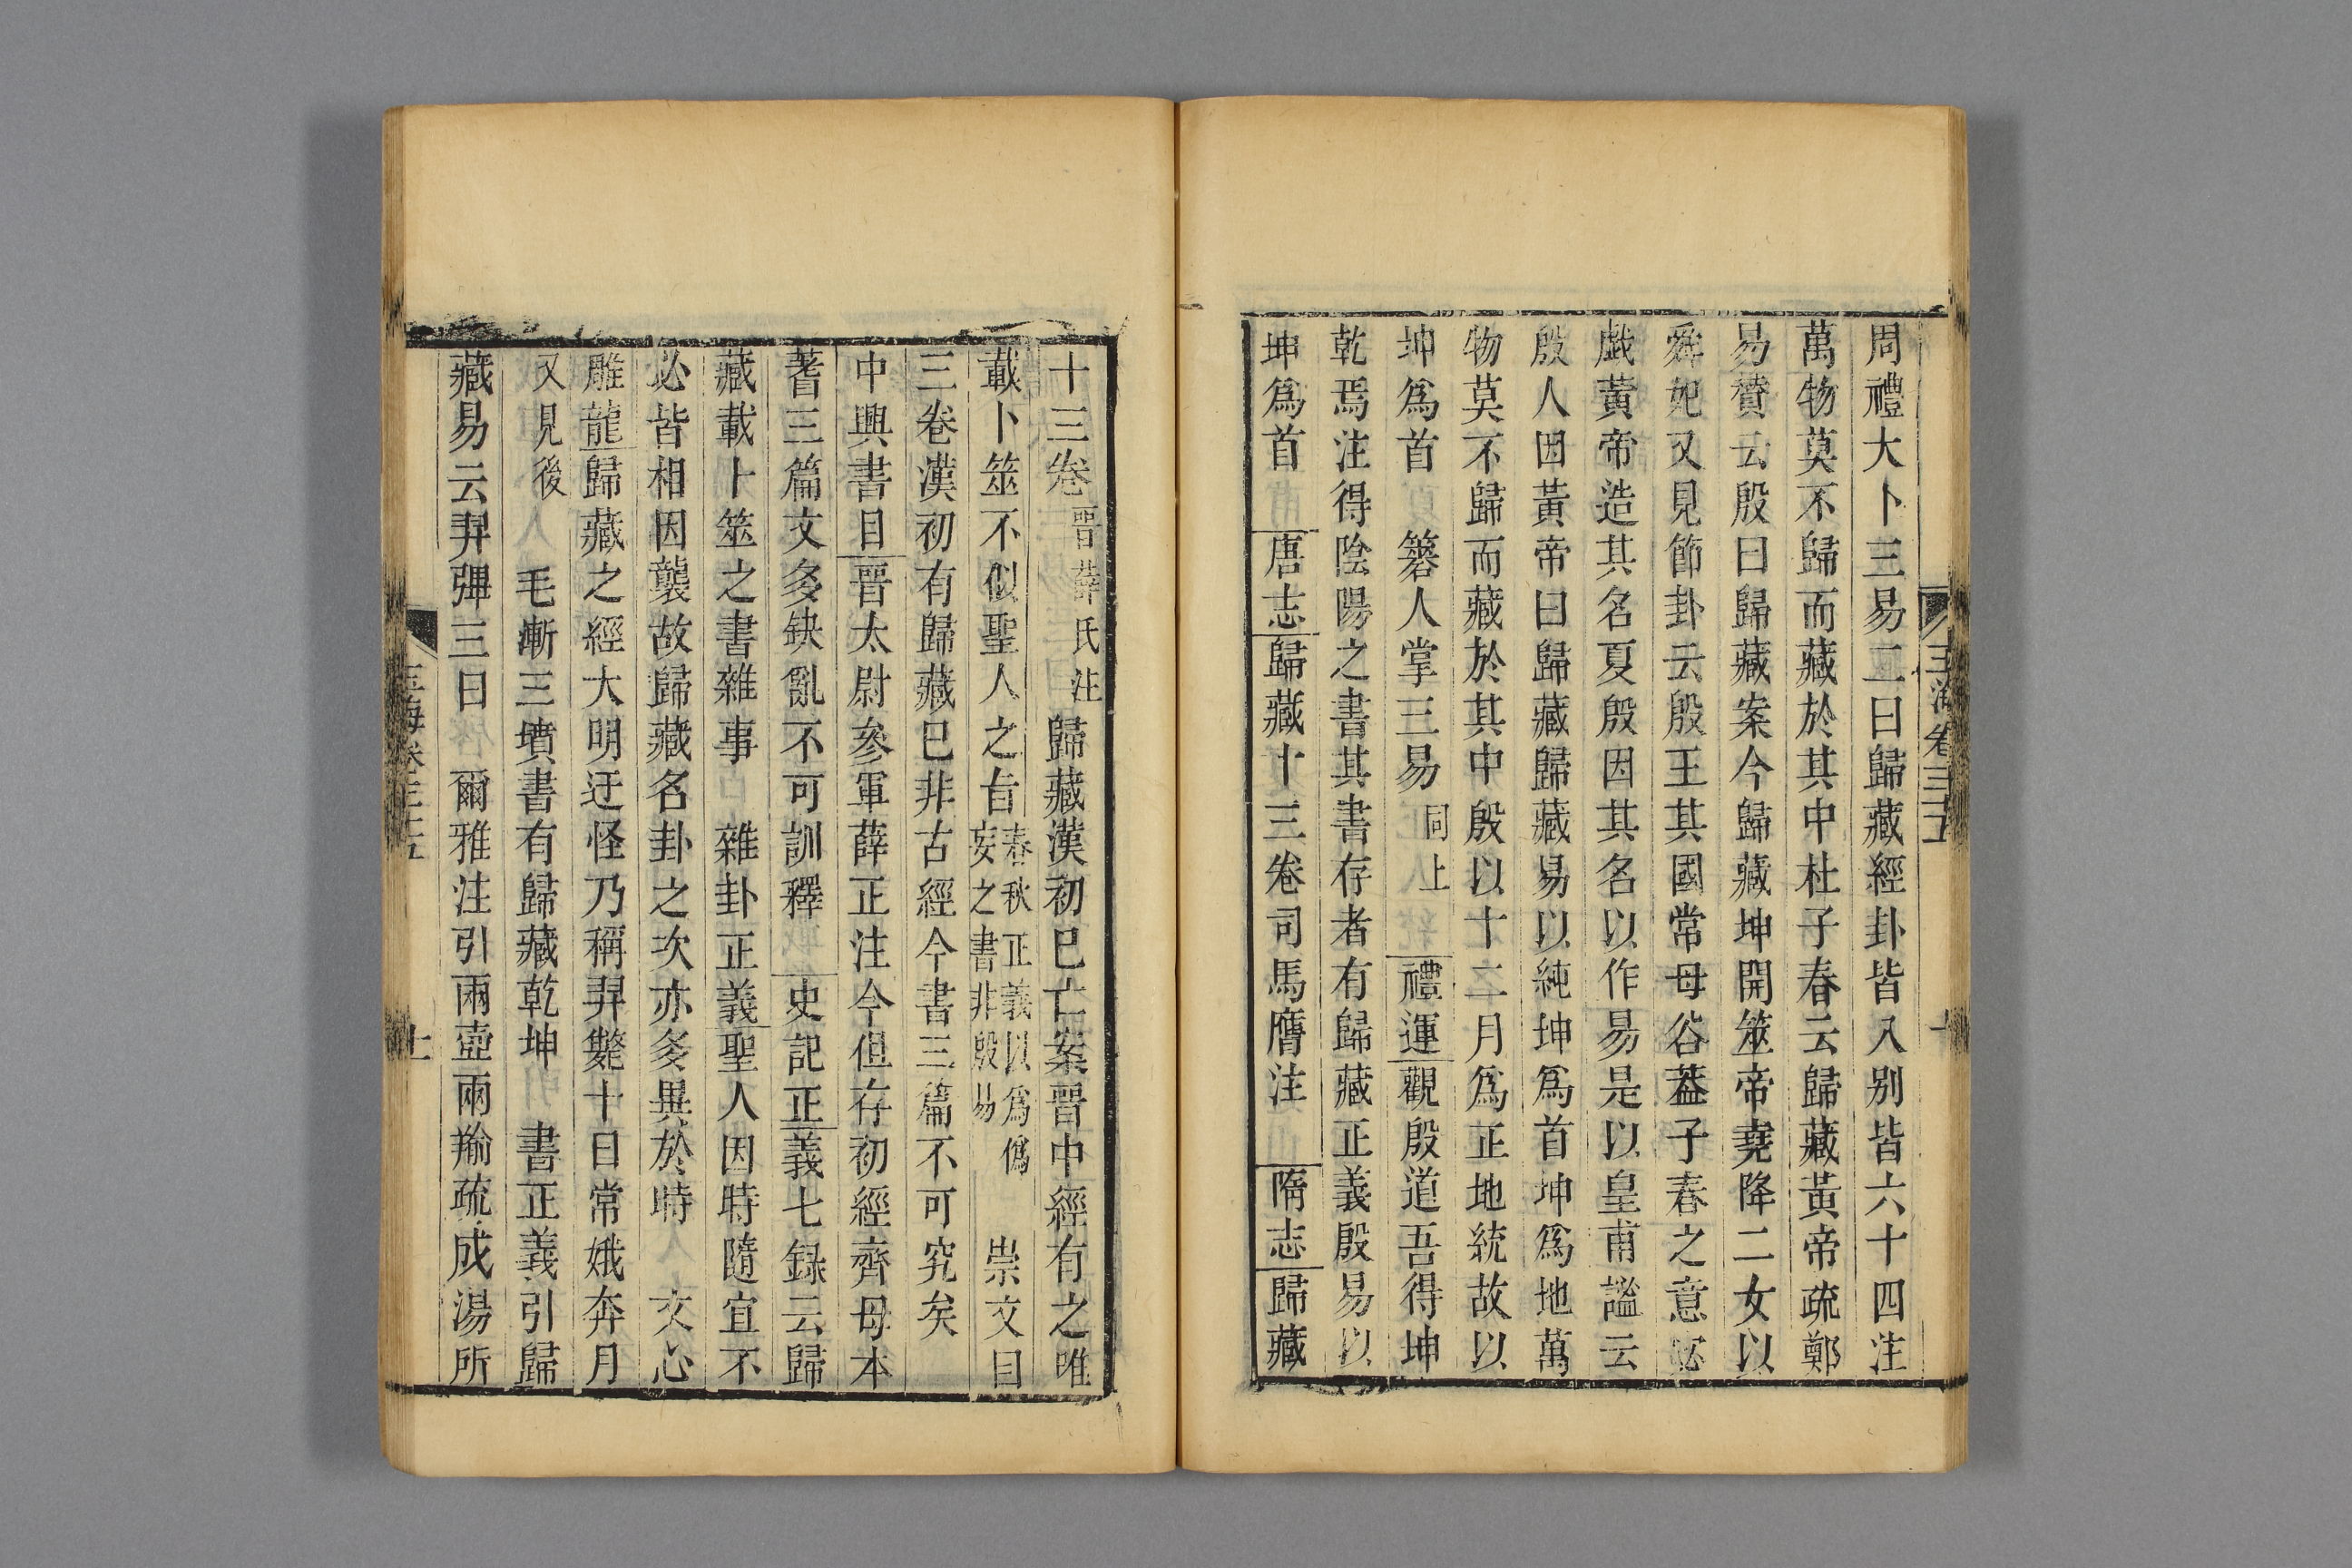 周禮大卜三易二曰歸藏經卦皆八別皆六十四注
萬物莫不歸而藏於其中杜子春云歸藏黃帝疏鄭
易贊云殷曰歸藏案今歸藏坤開筮帝堯降二女以
舜妃又見節卦云殷王其國常母谷葢子春之意宓
戯黃帝造其名夏殷因其名以作易是以皇甫謐云
殷人因黃帝曰歸藏歸藏易以純坤爲首坤爲地萬
物莫不歸而藏於其中殷以十二月爲正地統故以
坤爲首 簭人掌三易同上 禮運觀殷道吾得坤
乾焉注得陰陽之書其書存者有歸藏正義殷易以
坤爲首 唐志歸藏十三卷司馬膺注 隋志歸藏
十三卷晋薛氏注歸藏漢初巳亡案晋中經有之唯
載卜筮不似聖人之旨春秋正義以爲僞妄之書非殷易 崇文目
三卷漢初有歸藏巳非古經今書三篇不可究矣
中興書目晋太尉參軍薛正注今但存初經齊母本
蓍三篇文多缺亂不可訓釋 史記正義七録云歸
藏載卜筮之書雜事 雜卦正義聖人因時隨宜不
必皆相因襲故歸藏名卦之次亦多異於時 文心
雕龍歸藏之經大明迂怪乃稱羿斃十日常娥奔月
又見後 毛漸三墳書有歸藏乾坤 書正義引歸
藏易云羿彈三日 爾雅注引兩壺兩羭疏成湯所
玉海卷三十五